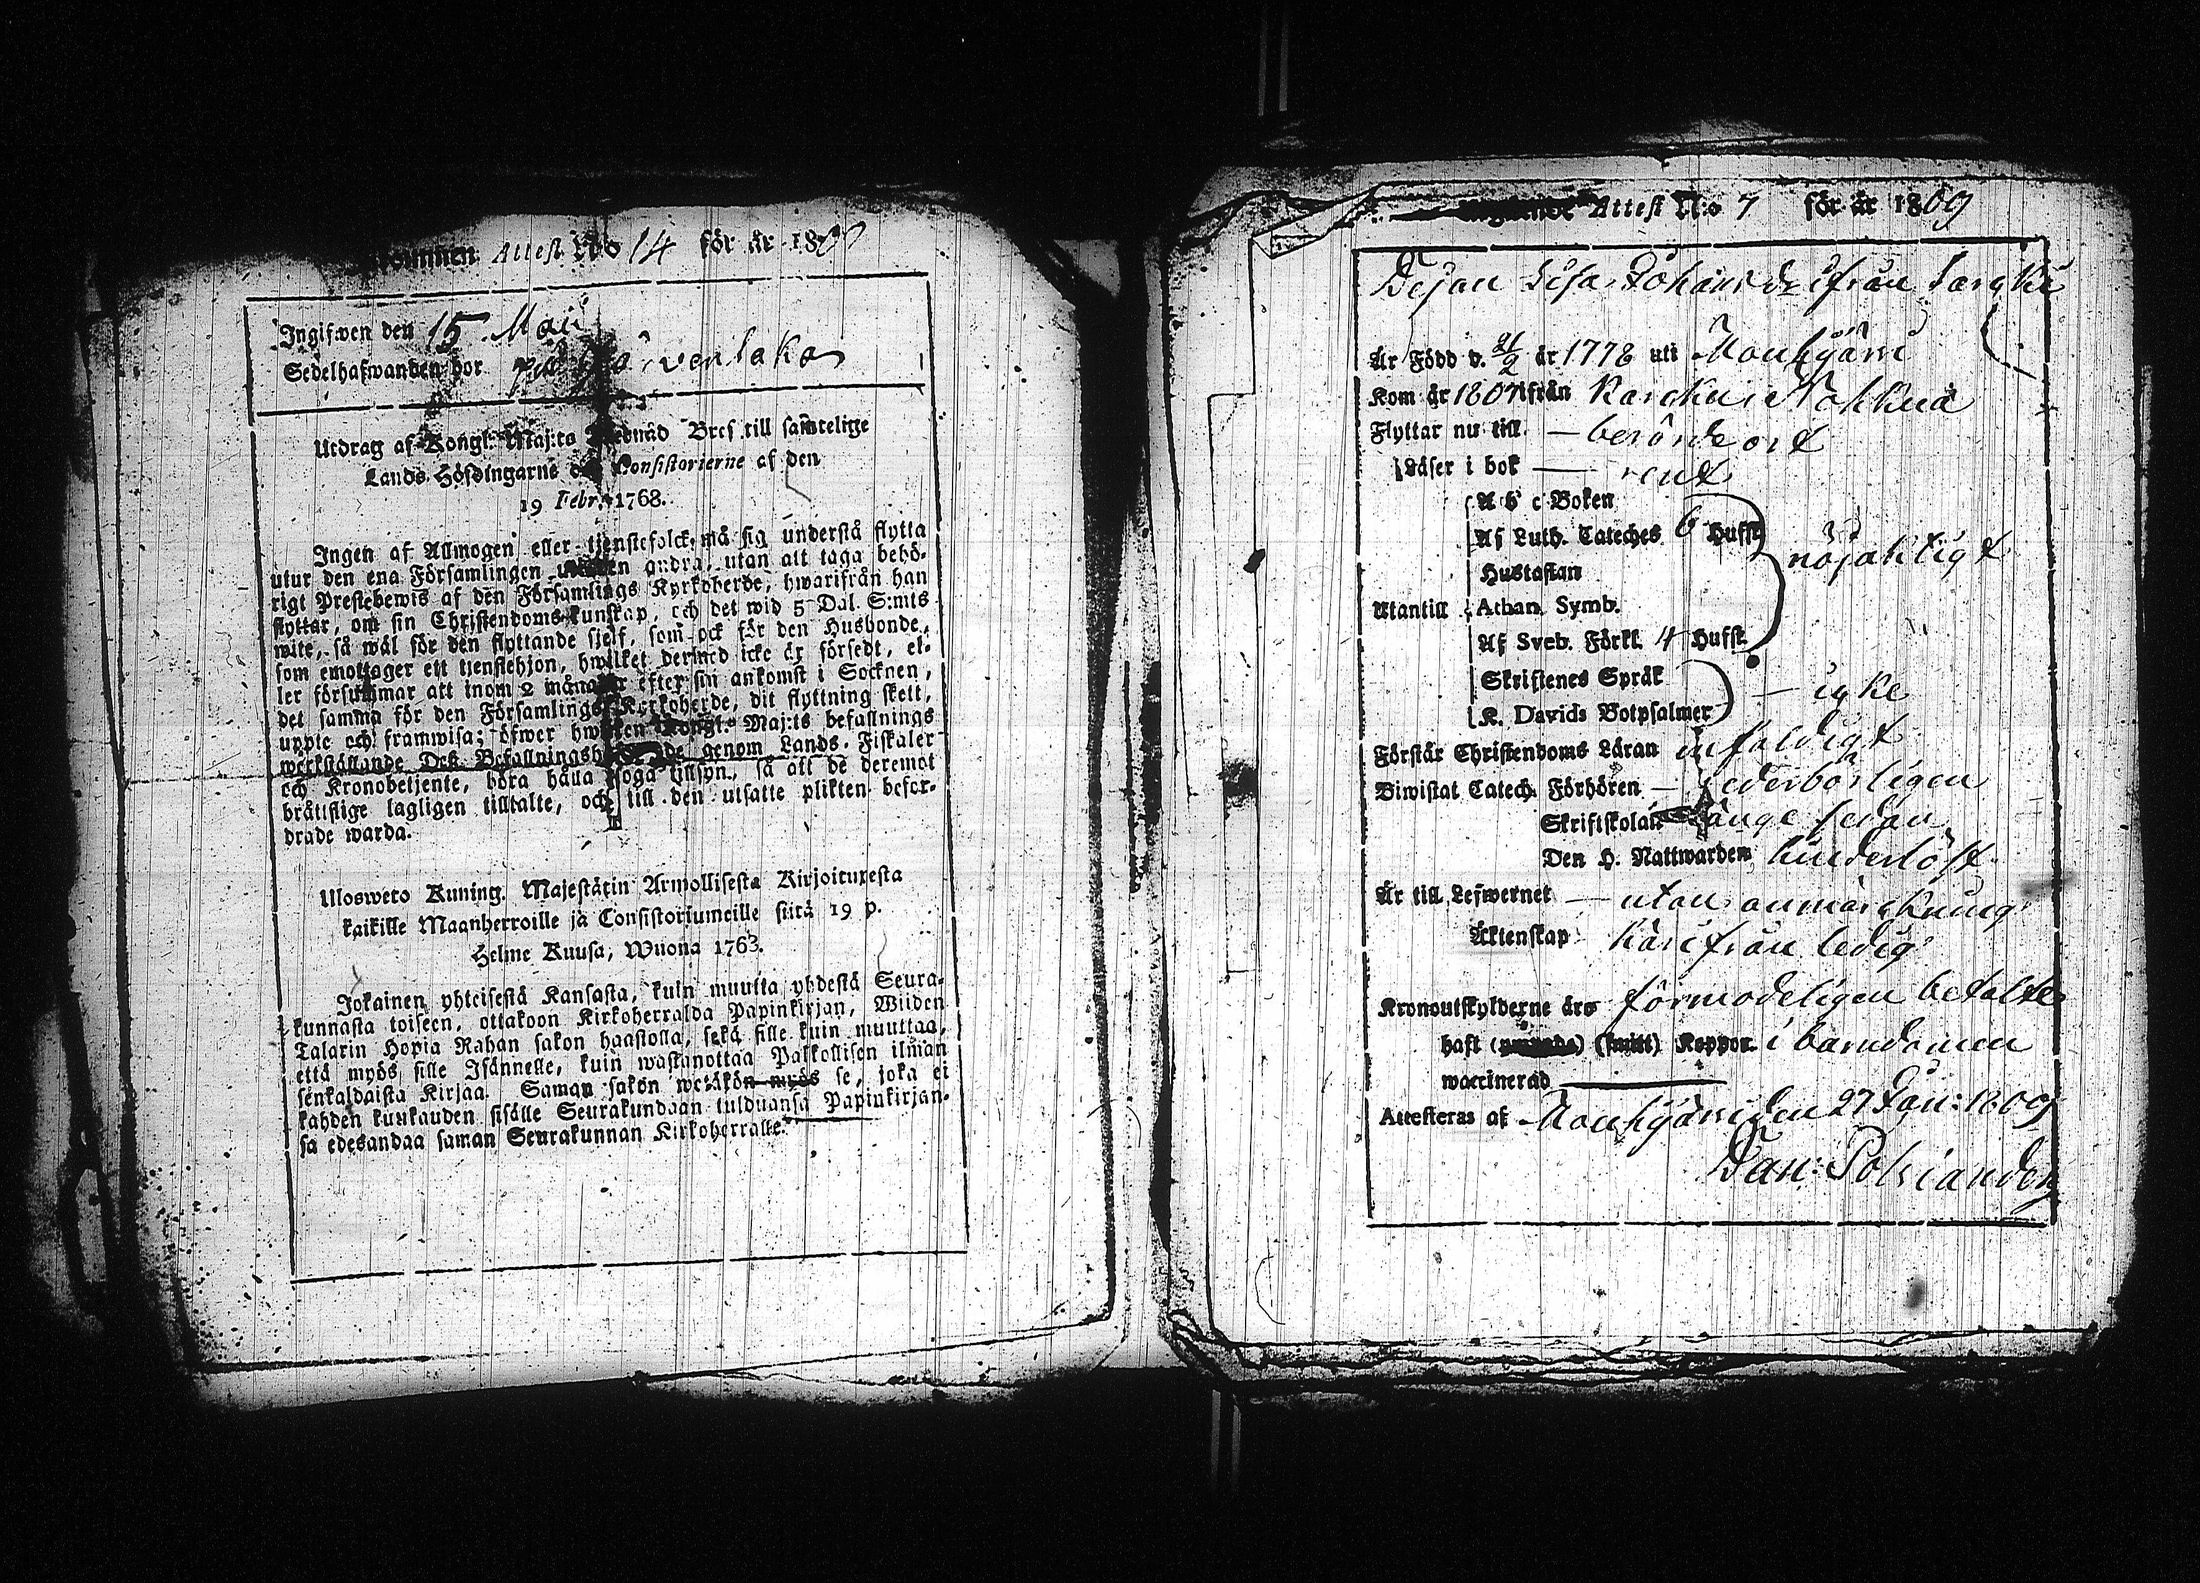 Attest No 14 för år 180
Ingifwen den 15. Maii
Sedelhafwanden bor på Järvenlaka
Utdrag af Kongl. Maj:ts Bref till samtelige
Lands Höfdingarne och Consistorierne af den
19 Febr. 1768.
Ingen af Allmogen eller tjenstefolck må sig understå flytta
utur den ena Församlingen andra, utan att taga behö-
rigt Prestebewis af den Församlings Kyrkoherde, hwarifrån han
flyttar, om sin Christendoms kunskap, och det wid 5 Dal. S:mts
wite, så wäl för den flyttande sjelf, som ock för den Husbonde,
som emottager ett tjenstehjon, hwilket dermed icke är försedt, el-
ler försummar att inom 2 månader efter sin ankomst i Socknen,
det samma för den Församlings Kyrkoherde, dit flyttning skett,
uppte och framwisa; öfwer hwilken Kongl. Maj:ts befallnings
werkställande Dess Befallningshafwande genom Lands-Fiskaler
och Kronobetjente, böra hålla noga tillsyn, så att de deremot
bråttslige lagligen tilltalte, och till den utsatte plikten befor-
drade warda.
Ulosweto Kuning. Majestätin Armollisesta Kirjoituxesta
kaikille Maanherroille ja Consistoriumeille siitä 19 p.
Helme Kuusa, Wuona 1763.
Jokainen yhteisestä Kansasta, kuin muutta yhdestä Seura-
kunnasta toiseen, ottakoon Kirkoherralda Papinkirjan, Wiiden
Talarin Hopia Rahan sakon haastolla, sekä sille kuin muuttaa,
että myös sille Isännelle, kuin wastanottaa Palkollisen ilman
senkaldaista Kirjaa. Saman sakon wetäkön myös se, joka ei
kahden kuukauden sisälle Seurakundaan tulduansa Papinkirjan-
sa edesandaa saman Seurakunnan Kirkoherralle.
Attest N:o 7 för år 1809
Pigan Lisa Johans dr ifrån
Är Född d. 21/2 år 1778 uti Mouhijärvi
Kom år 1807 ifrån Karcku Nohkua
Flyttar nu till — berörde ort
Läser i bok — rent
A b c Boken
Af Luth. Cateches 6 Hufst.
Hustaflan
nöjaktigt
Utantill Athan. Symb.
Af Sveb. Förkl. 4 Hufst.
Skriftenes Språk
— icke
K. Davids Botpsalmer
Förstår Christendoms Läran enfaldigt
Biwistat Catech. Förhören — wederbörligen
Skriftskolan länge sedan
Den H. Nattwarden hinderlöst
Är till Lefwernet — utan anmärckning
Äktenskap härifrån ledig
Kronoutskylderne äro förmodeligen betalte
haft (smitt) Koppor i barndomen
waccinerad —
Attesteras af Mouhijärvi den 27 Jan: 1809
Dan: Polviander